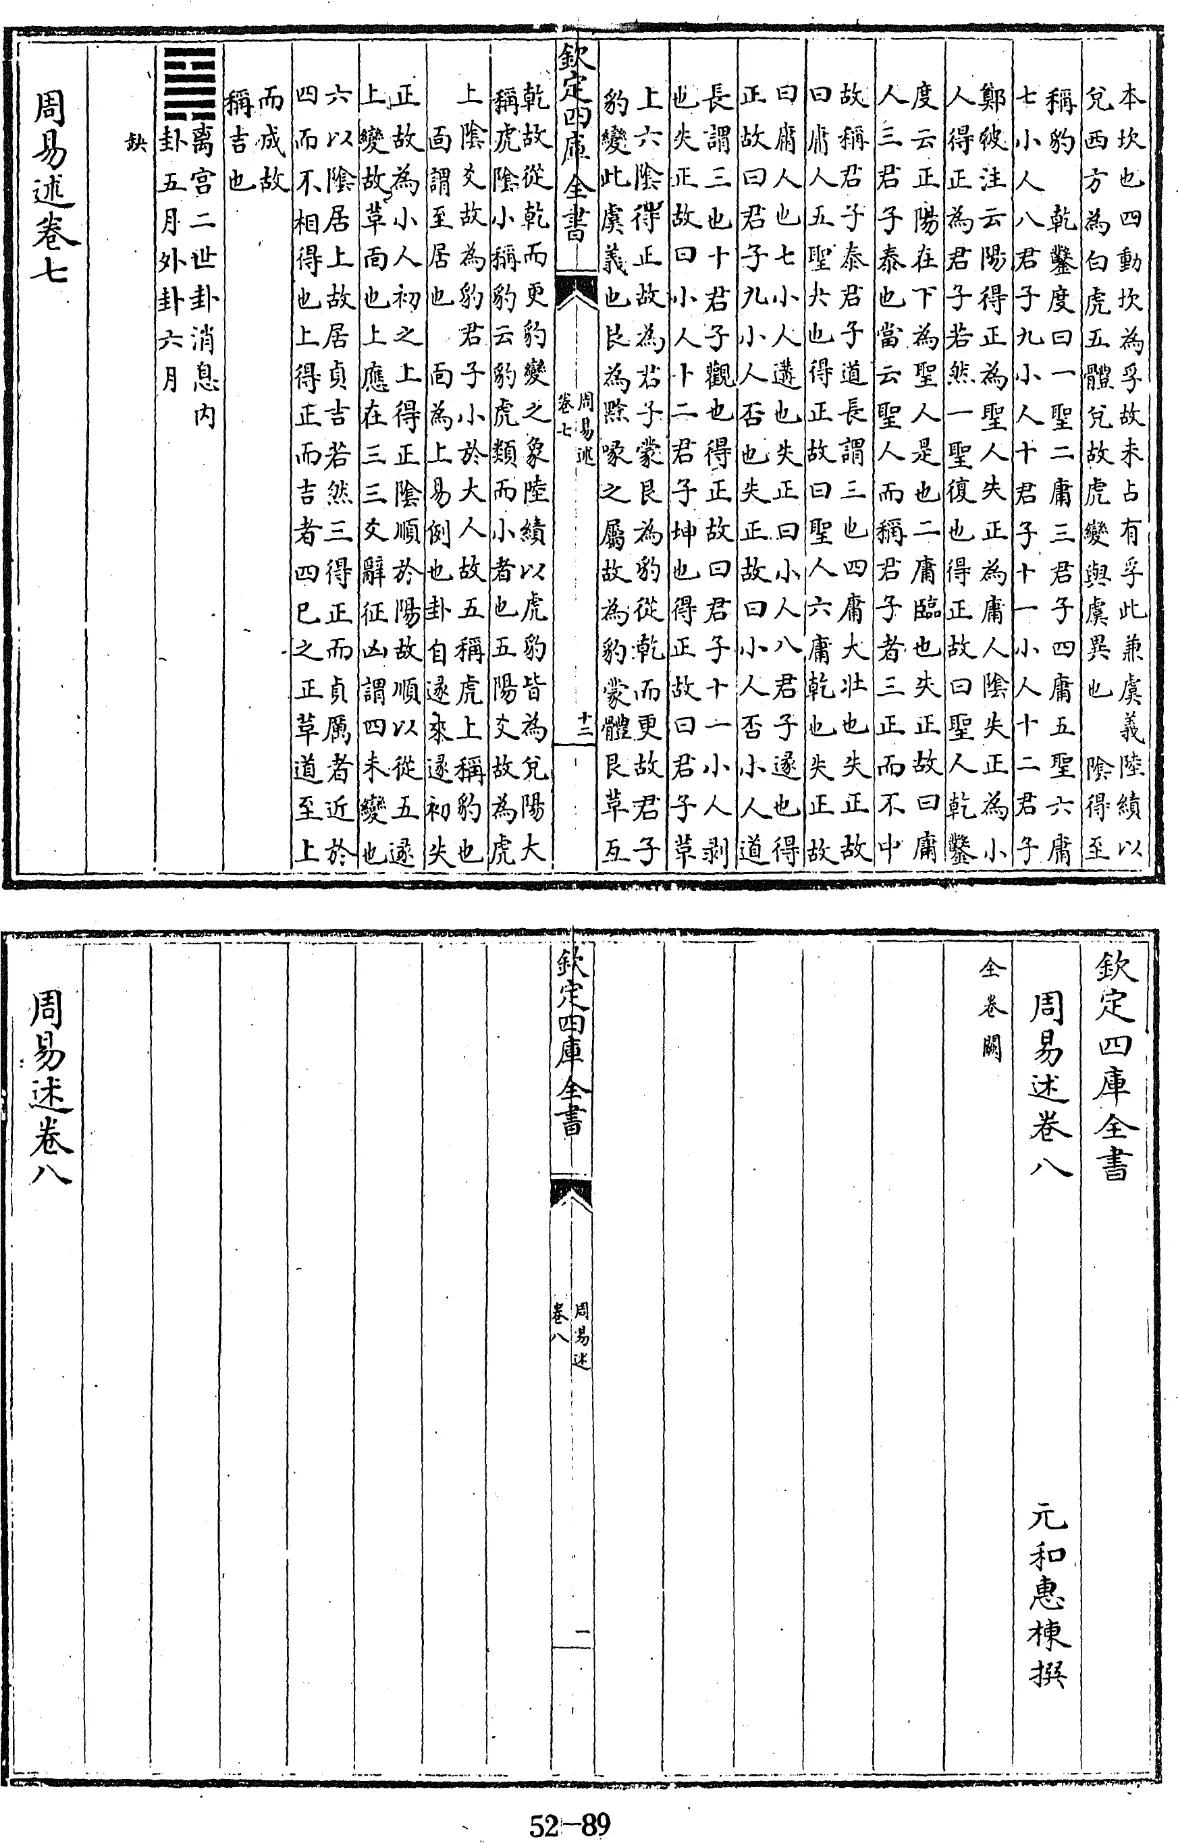 本坎也四動坎為孚故未占有孚此兼虞義陸績以
兌西方為白虎五體兌故虎變與虞異也　陰得至
稱豹　乾鑿度曰一聖二庸三君子四庸五聖六庸
七小人八君子九小人十君子十一小人十二君子
鄭彼注云陽得正為聖人失正為庸人陰失正為小
人得正為君子若然一聖復也得正故曰聖人乾鑿
度云正陽在下為聖人是也二庸臨也失正故曰庸
人三君子泰也當云聖人而稱君子者三正而不中
故稱君子泰君子道長謂三也四庸大壯也失正故
曰庸人五聖夬也得正故曰聖人六庸乾也失正故
曰庸人也七小人遘也失正曰小人八君子遂也得
正故曰君子九小人否也失正故曰小人否小人道
長謂三也十君子觀也得正故曰君子十一小人剥
也失正故曰小人十二君子坤也得正故曰君子草
上六陰得正故為君子蒙艮為豹從乾而更故君子
豹變此虞義也艮為黔喙之屬故為豹蒙體艮草互
欽定四庫全書
周易述
卷七
十三
乾故從乾而更豹變之象陸績以虎豹皆為兌陽大
稱虎陰小稱豹云豹虎類而小者也五陽爻故為虎
上陰爻故為豹君子小於大人故五稱虎上稱豹也
面謂至居也　面為上易例也卦自遂來遂初失
正故為小人初之上得正陰順於陽故順以從五遂
上變故草面也上應在三三爻辭征凶謂四未變也
六以陰居上故居貞吉若然三得正而貞厲者近於
四而不相得也上得正而吉者四已之正草道至上
而成故
稱吉也
離宮二世卦消息內
卦五月外卦六月
缺
周易述卷七
欽定四庫全書
周易述卷八
元和惠棟撰
全卷闕
欽定四庫全書
周易述
卷八
一
周易述卷八
52-89